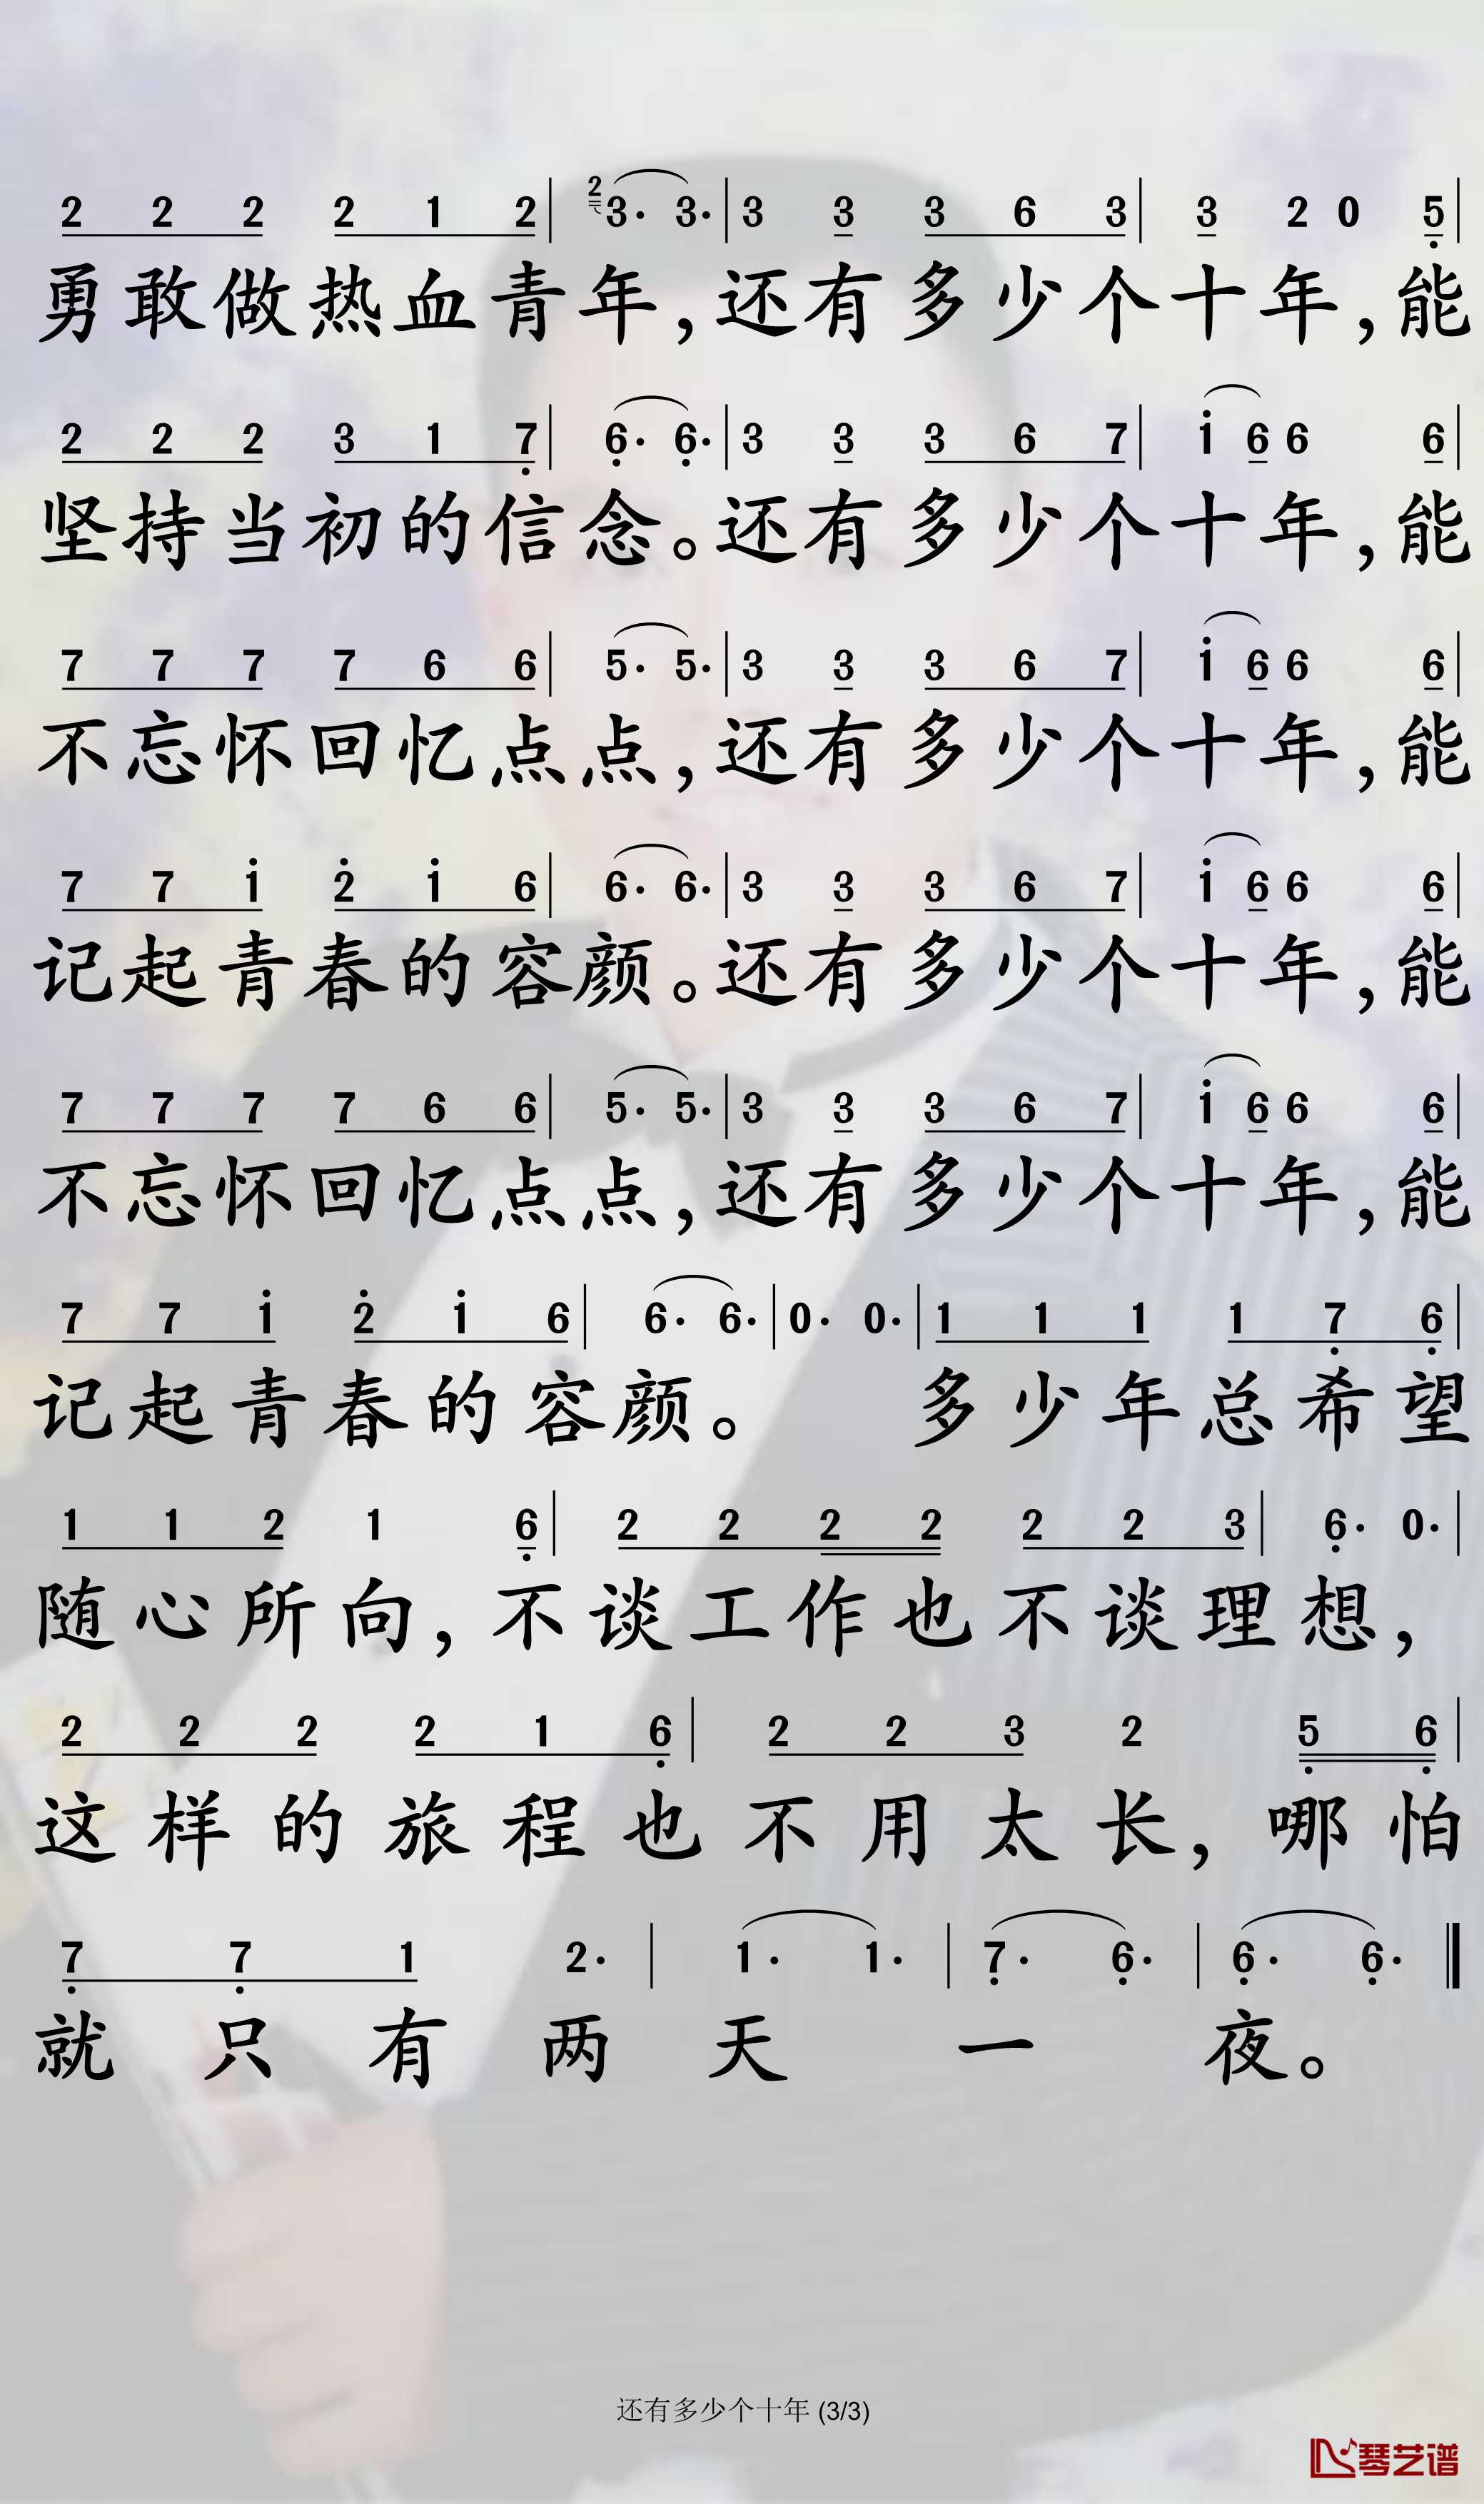 2 2 2 2 1 2 | 2 3· 3· | 3 3 3 6 3 | 3 2 0 5 |
勇敢做热血青年，还有多少个十年，能
2 2 2 3 1 7 | 6· 6· | 3 3 3 6 7 | 1 6 6 6 |
坚持当初的信念。还有多少个十年，能
7 7 7 7 6 6 | 5· 5· | 3 3 3 6 7 | 1 6 6 6 |
不忘怀回忆点点，还有多少个十年，能
7 7 1 2 1 6 | 6· 6· | 3 3 3 6 7 | 1 6 6 6 |
记起青春的容颜。还有多少个十年，能
7 7 7 7 6 6 | 5· 5· | 3 3 3 6 7 | 1 6 6 6 |
不忘怀回忆点点，还有多少个十年，能
7 7 1 2 1 6 | 6· 6· | 0· 0· | 1 1 1 1 7 6 |
记起青春的容颜。 多少年总希望
1 1 2 1 6 | 2 2 2 2 2 2 3 | 6· 0· |
随心所向，不谈工作也不谈理想，
2 2 2 2 1 6 | 2 2 3 2 5 6 |
这样的旅程也不用太长，哪怕
7 7 1 2· | 1· 1· | 7· 6· | 6· 6· ‖
就只有两天一夜。
还有多少个十年 (3/3)
琴艺谱